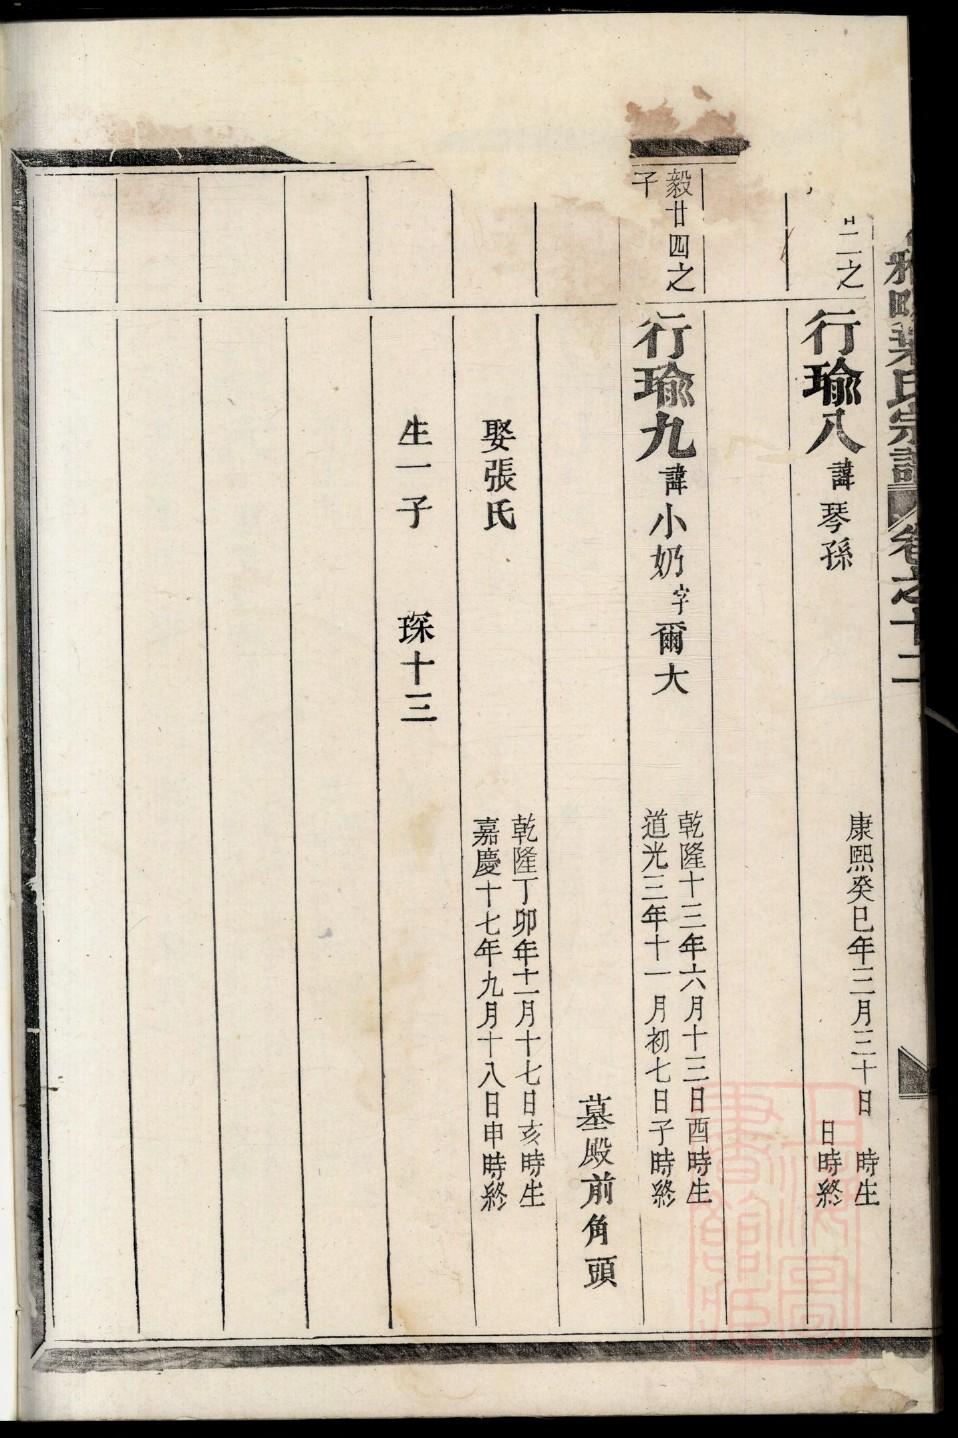 氏宗譜 卷之十二
廿二之
行瑜八 諱琴孫 康熙癸巳年三月三十日 時生
日時終
毅廿四之
子
行瑜九 諱小奶字爾大 乾隆十三年六月十三日酉時生
道光三年十一月初七日子時終
墓殿前角頭
娶張氏 乾隆丁卯年十一月十七日亥時生
嘉慶十七年九月十八日申時終
生一子 琛十三